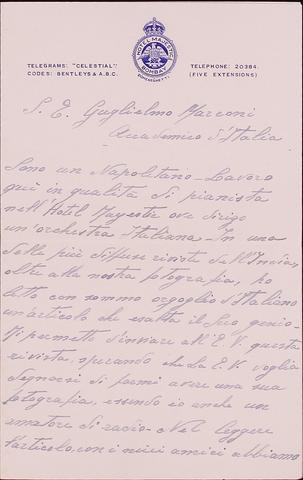 HOTEL MAJESTIC
BOMBAY
TELEGRAMS: "CELESTIAL"
CODES: BENTLEYS & A.B.C.
TELEPHONE: 20384.
(FIVE EXTENSIONS)
S. E. Guglielmo Marconi
Accademico d'Italia
Sono un Napoletano - Lavoro
qui in qualità di pianista
nell'Hotel Majestic ove dirigo
un'orchestra Italiana - In una
delle più diffuse riviste dell'India,
oltre alla nostra fotografia, ho
letto con sommo orgoglio d'Italiano
un'articolo che esalta il Suo genio -
Mi permetto d'inviare all'E. V. questa
rivista, sperando che La E. V. voglia
degnarsi di farmi avere una sua
fotografia, essendo io anche un
amatore di radio - Nel leggere
l'articolo, con i miei amici abbiamo